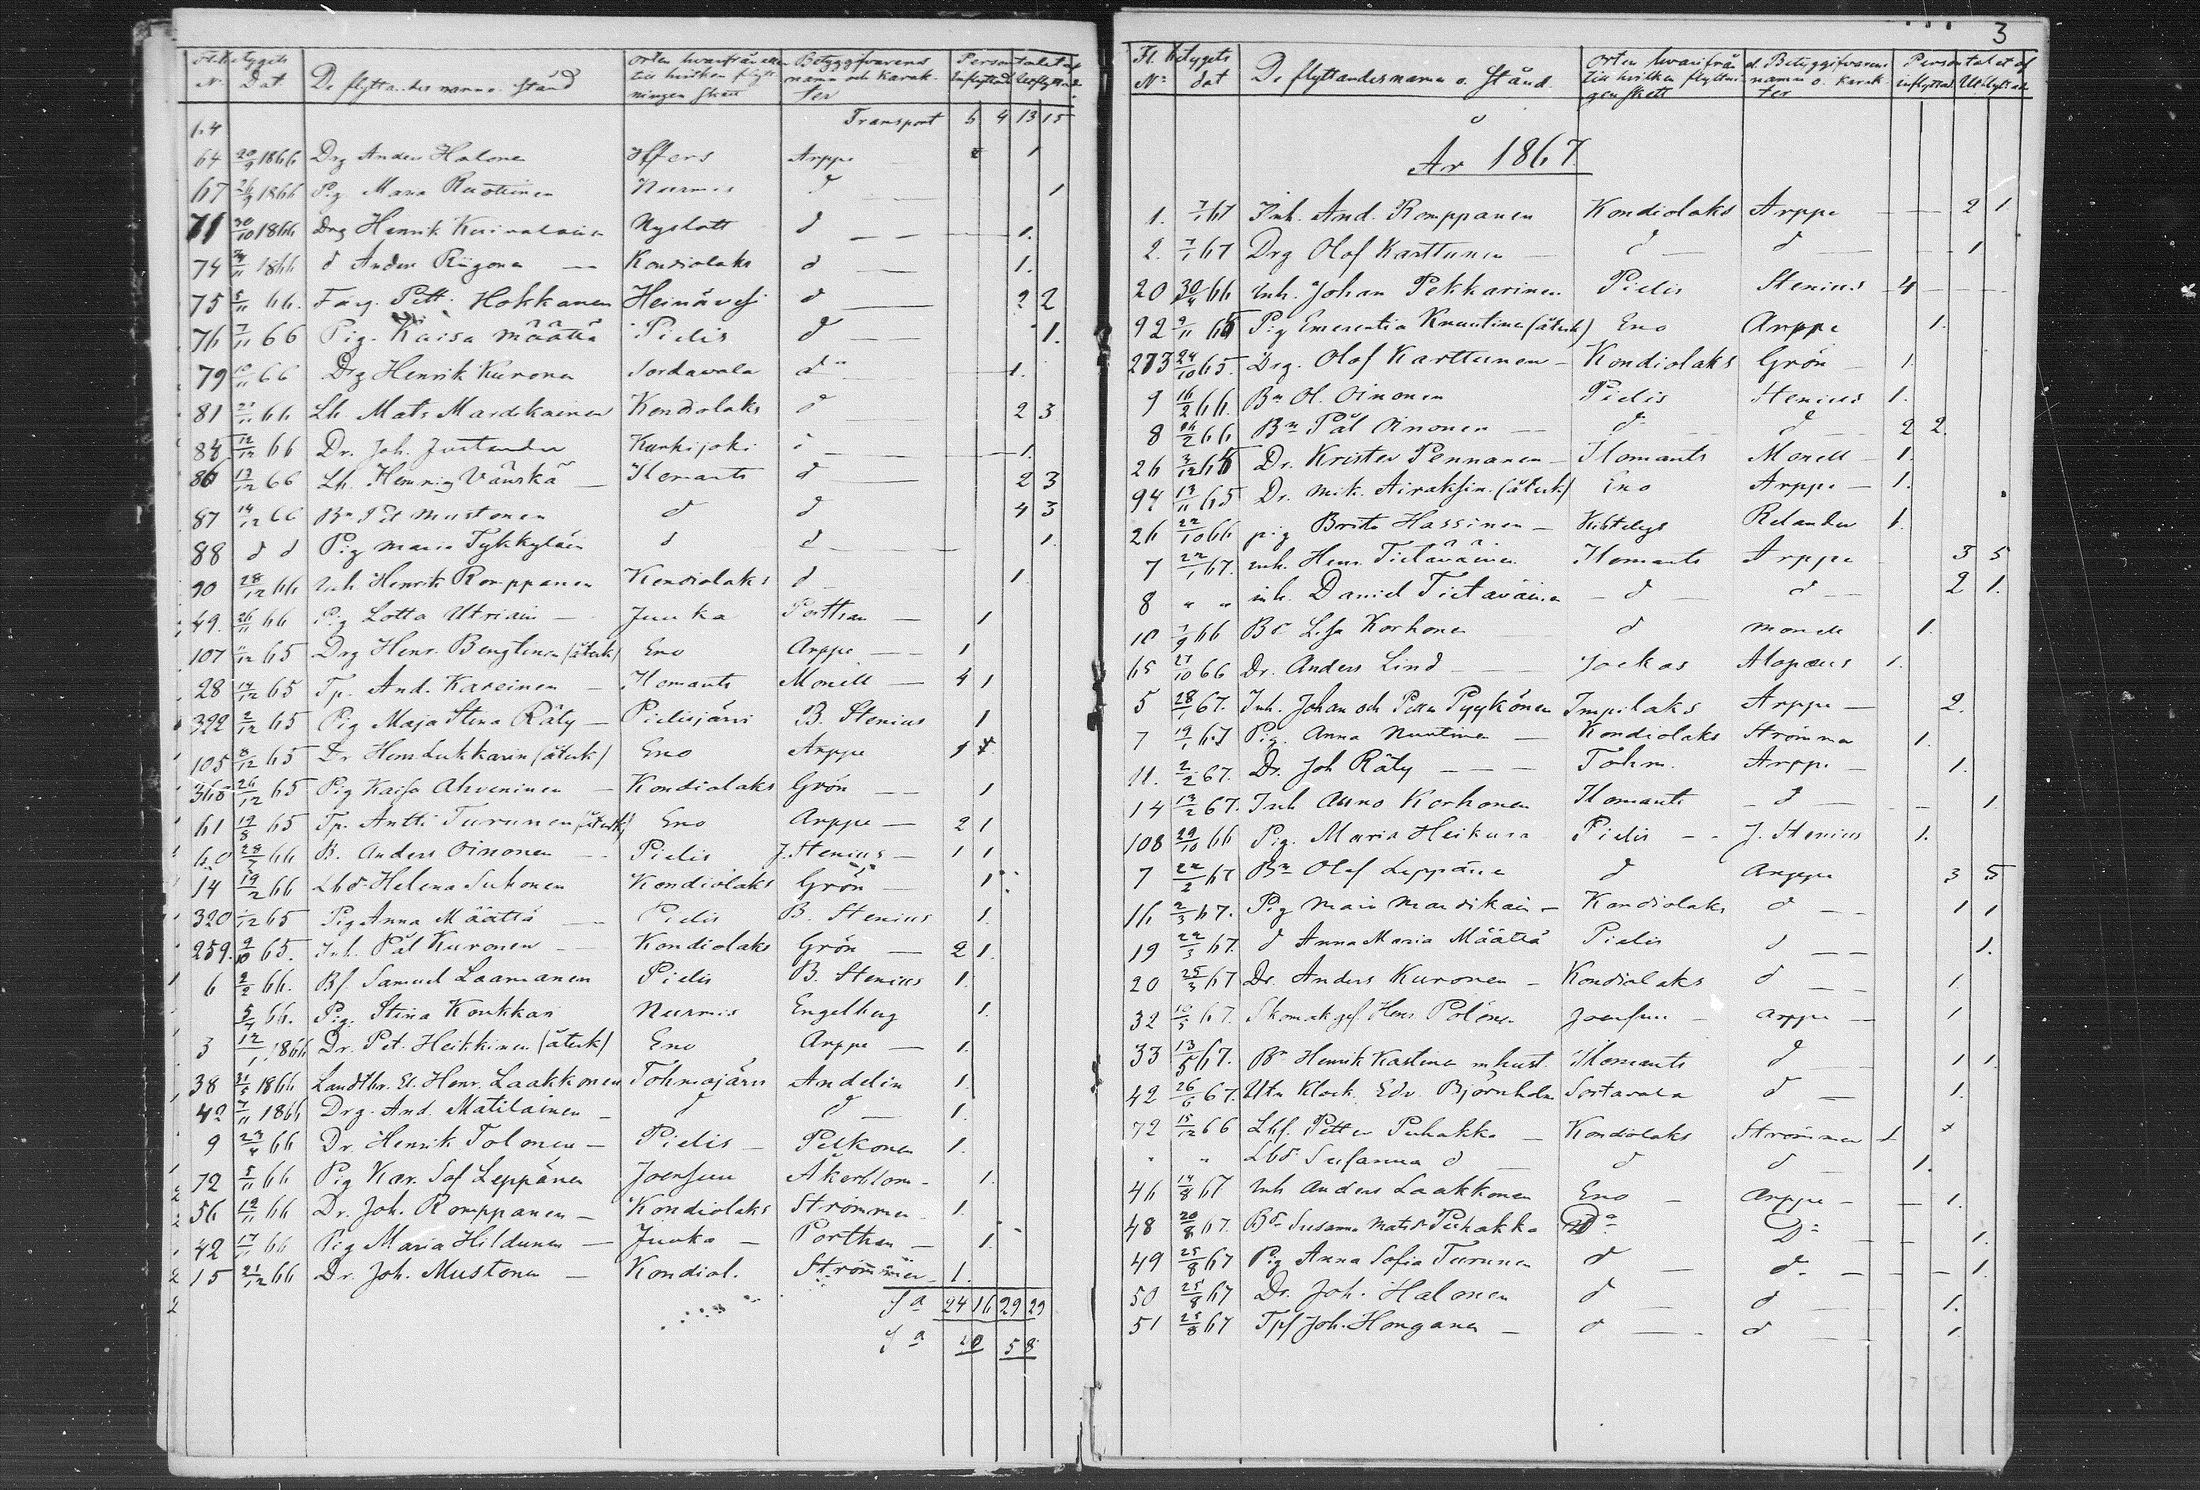 Transport 6 4 13 15
64
64 20/9 1866 Drg Anders Halonen Arppe 1
67 26/9 1866 Pig Maria Nurmis d 1
71 30/10 1866 Drg Henrik Nyslott d 1.
74 1866 d Anders Kondiolaks d 1.
75 5/11 66. Pett. Hokkanen Heinävesi d 2 2
76 7/11 66 Pig. Kaisa Määttä Pielis d 1.
79 66 Drg Henrik Kuronen Sordavala d 1.
81 66 Lh Mats Mardikainen Kondiolaks d 2 3
84 12/12 66 Dr. Joh. Kurkijoki 1.
86 13/12 66 Lh. Hemmig Vänskä Ilomants d 2 3
87 14/12 66 Bn Pet Mustonen d d 4 3
88 d d Pig Maria Tykkyläin d d 1.
90 28/12 66 Inh Henrik Romppanen Kondiolaks d 1
49. 26/11 66 Pig Lotta Utriain Juuka Porthan 1
107 65 Drg Henr. Bengtinen (återk) Eno Arppe 1
28 14/12 65 Tp. And. Kareinen Ilomants Monell 4 1
322 2/12 65 Pig Maja Stina Räty Pielisjärvi B. Stenius 1
105 8/12 65 Dr Henr Lukkarin (återk) Eno Arppe 1
368 26/12 65 Pig Kaisa Ahveninen Kondiolaks Grön 1
61 12/8 65 Tp. Antti Turunen (återk) Eno Arppe 2 1
60 28/7 66 B. Anders Oinonen Pielis J. Stenius 1 1
14 19/2 66 Lbd. Helena Suhonen Kondiolaks Grön 1
320 65 Pig Anna Määttä Pielis B. Stenius 1.
259. 9/10 65. Inh. Pål Kuronen Kondiolaks Grön 2 1.
6 2/2 66. Bf Samuel Laamanen Pielis B. Stenius 1.
5/7 66. Pig. Stina Konkkar Nurmis Engelberg 1.
3 12/1 1866 Dr. Pet. Heikkinen (återk) Eno Arppe 1.
38 31/5 1866 Landthr. El. Henr. Laakkonen Tohmajärvi Andelin 1.
42 7/11 1866 Drg. And. Matilainen d d 1.
9 23/4 66 Dr. Henrik Tolonen Pielis Pelkonen 1.
72 5/11 66 Pig Kar. Sof Leppänen Joensuu Åkerblom 1.
56 12/11 66 Dr. Joh. Romppanen Kondiolaks Strömmer 1.
42 17/11 66 Pig Maria Hildunen Juuka Porthan 1.
15 21/12 66 Dr. Joh. Mustonen Kondiol. Strömmer 1.
Sa 24 16 29 29
Sa 40 58
3
Fl. betygets De flyttandes namn o. Stånd. Orten hvarifrån el. till hvilken flyttningen skett Betygsgifvarens namn o. karakter Persontalet af
No dat inflyttad Utflyttad
År 1867.
1. 7/1 67 Inh. And. Romppanen Kondiolaks Arppe 2 1
2. 7/1 67 Drg Olof Karttunen d d 1
20 30/4 66 Inh. Johan Pekkarinen Pielis Stenius 4
92 9/11 65 Pig Emerentia Knuutinen (återk) Eno Arppe 1.
273 24/10 65. Drg. Olof Karttunen Kondiolaks Grön 1.
9 16/2 66. Bn H. Oinonen Pielis Stenius 1.
8 16/2 66 Bn Pål Oinonen d d 2 2.
26 3/12 65 Dr. Krister Pennanen Ilomants Monell 1.
94 13/11 65 Dr. Mik. Airaksin. (återk) Eno Arppe 1.
26 22/10 66 pig Brita Hassinen Kihtelys Relander 1.
7 22/1 67. Inh. Henr. Tietäväinen Ilomants Arppe 3 5
8 " " inh. Daniel Tietäväinen d d 2 1.
10 7/9 66 Bd Lisa Korhonen d Monell 1.
65 27/10 66 Dr. Anders Lind Jockas Alopæus 1.
5 28/1 67. Inh. Johan och Petter Pyykönen Impilaks Arppe 2.
7 19/1 67 Pig. Anna Nuutinen Kondiolaks Strömmer 1.
11. 2/2 67. Dr. Joh Räty Tohm. Arppe 1.
14 13/2 67. Inh Auno Korhonen Ilomants d 1
108 29/10 66 Pig. Maria Heikura Pielis J. Stenius 1.
7 22/2 67 Bn Olof Leppänen d Arppe 3 5
16 2/3 67. Pig Maria Mardikain Kondiolaks d 1 1
19 22/3 67. d Anna Maria Määttä Pielis d 1.
20 25/3 67 Dr. Anders Kuronen Kondiolaks d 1.
32 10/5 67. Skomak. gef Henr. Polonen Joensuu Arppe 1
33 13/5 67. Bn Henrik Kastinen m hust. Ilomants d 1 1.
42 26/6 67. Utn Klock. Edv. Björnholm Sortavala d 1.
72 15/12 66 Lhf. Petter Puhakka Kondiolaks Strömmer 1
" " Lbd Susanna d d d 1.
46 14/8 67 Inh Anders Laakkonen Eno Arppe 1.
48 20/8 67. Bd Susanna Matsdr Puhakka Do Do 1.
49 25/8 67 Pig Anna Sofia Turunen d d 1.
50 25/8 67 Dr. Joh. Halonen d d 1.
51 25/8 67 Tpf Joh. Honganen d d 1.